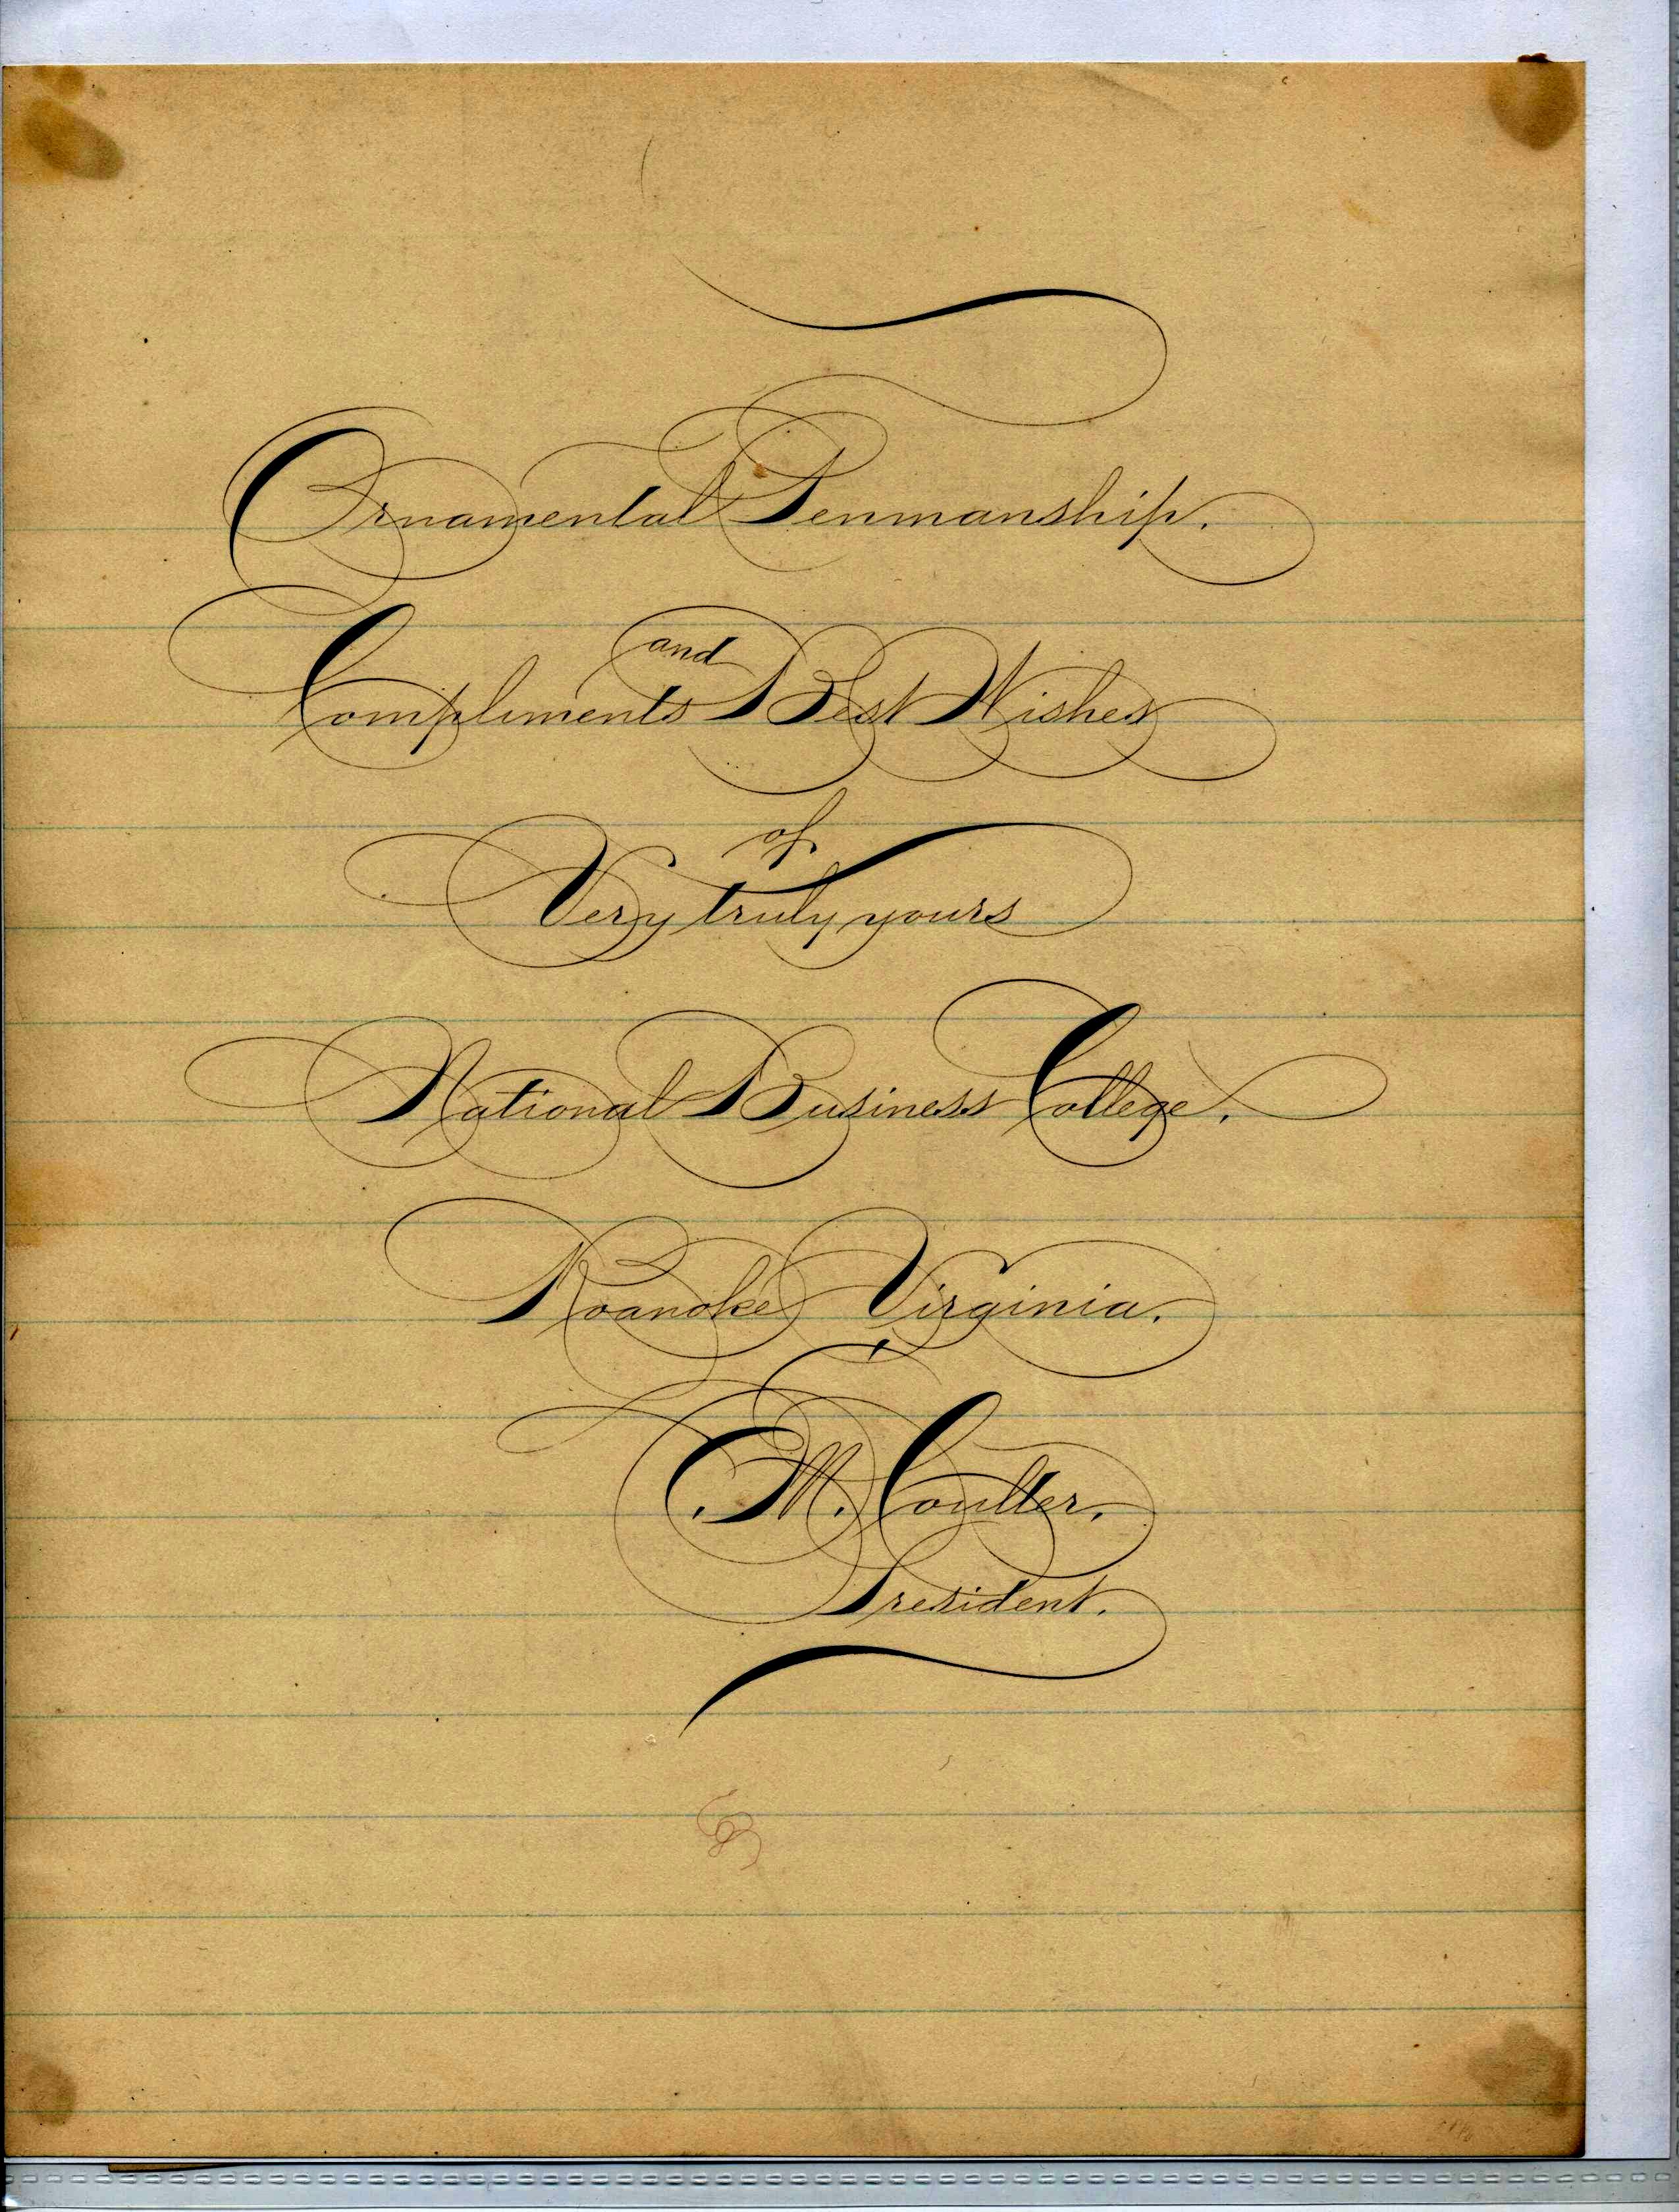 Ornamental Penmanship.
Compliments and Best Wishes
of
Very truly yours
National Business College.
Roanoke Virginia.
E. M. Coulter.
President.